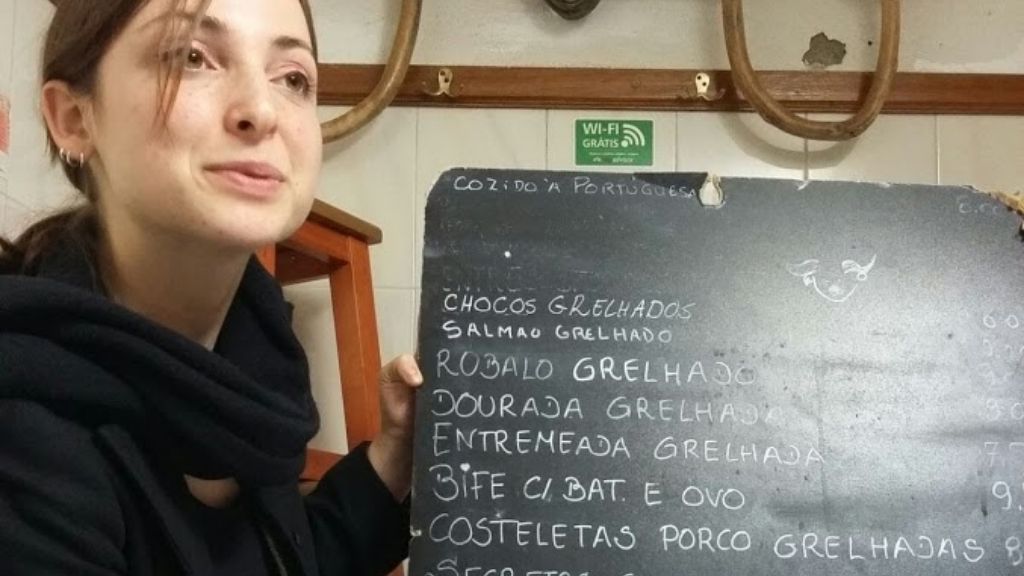 WI-FI
GRÁTIS
COZIDO À PORTUGUESA
CHOCOS GRELHADOS 6.0
SALMAO GRELHADO
ROBALO GRELHADO
DOURADA GRELHADA
ENTREMEADA GRELHADA 7.
BIFE C/ BAT. E OVO 9.
COSTELETAS PORCO GRELHADAS 8